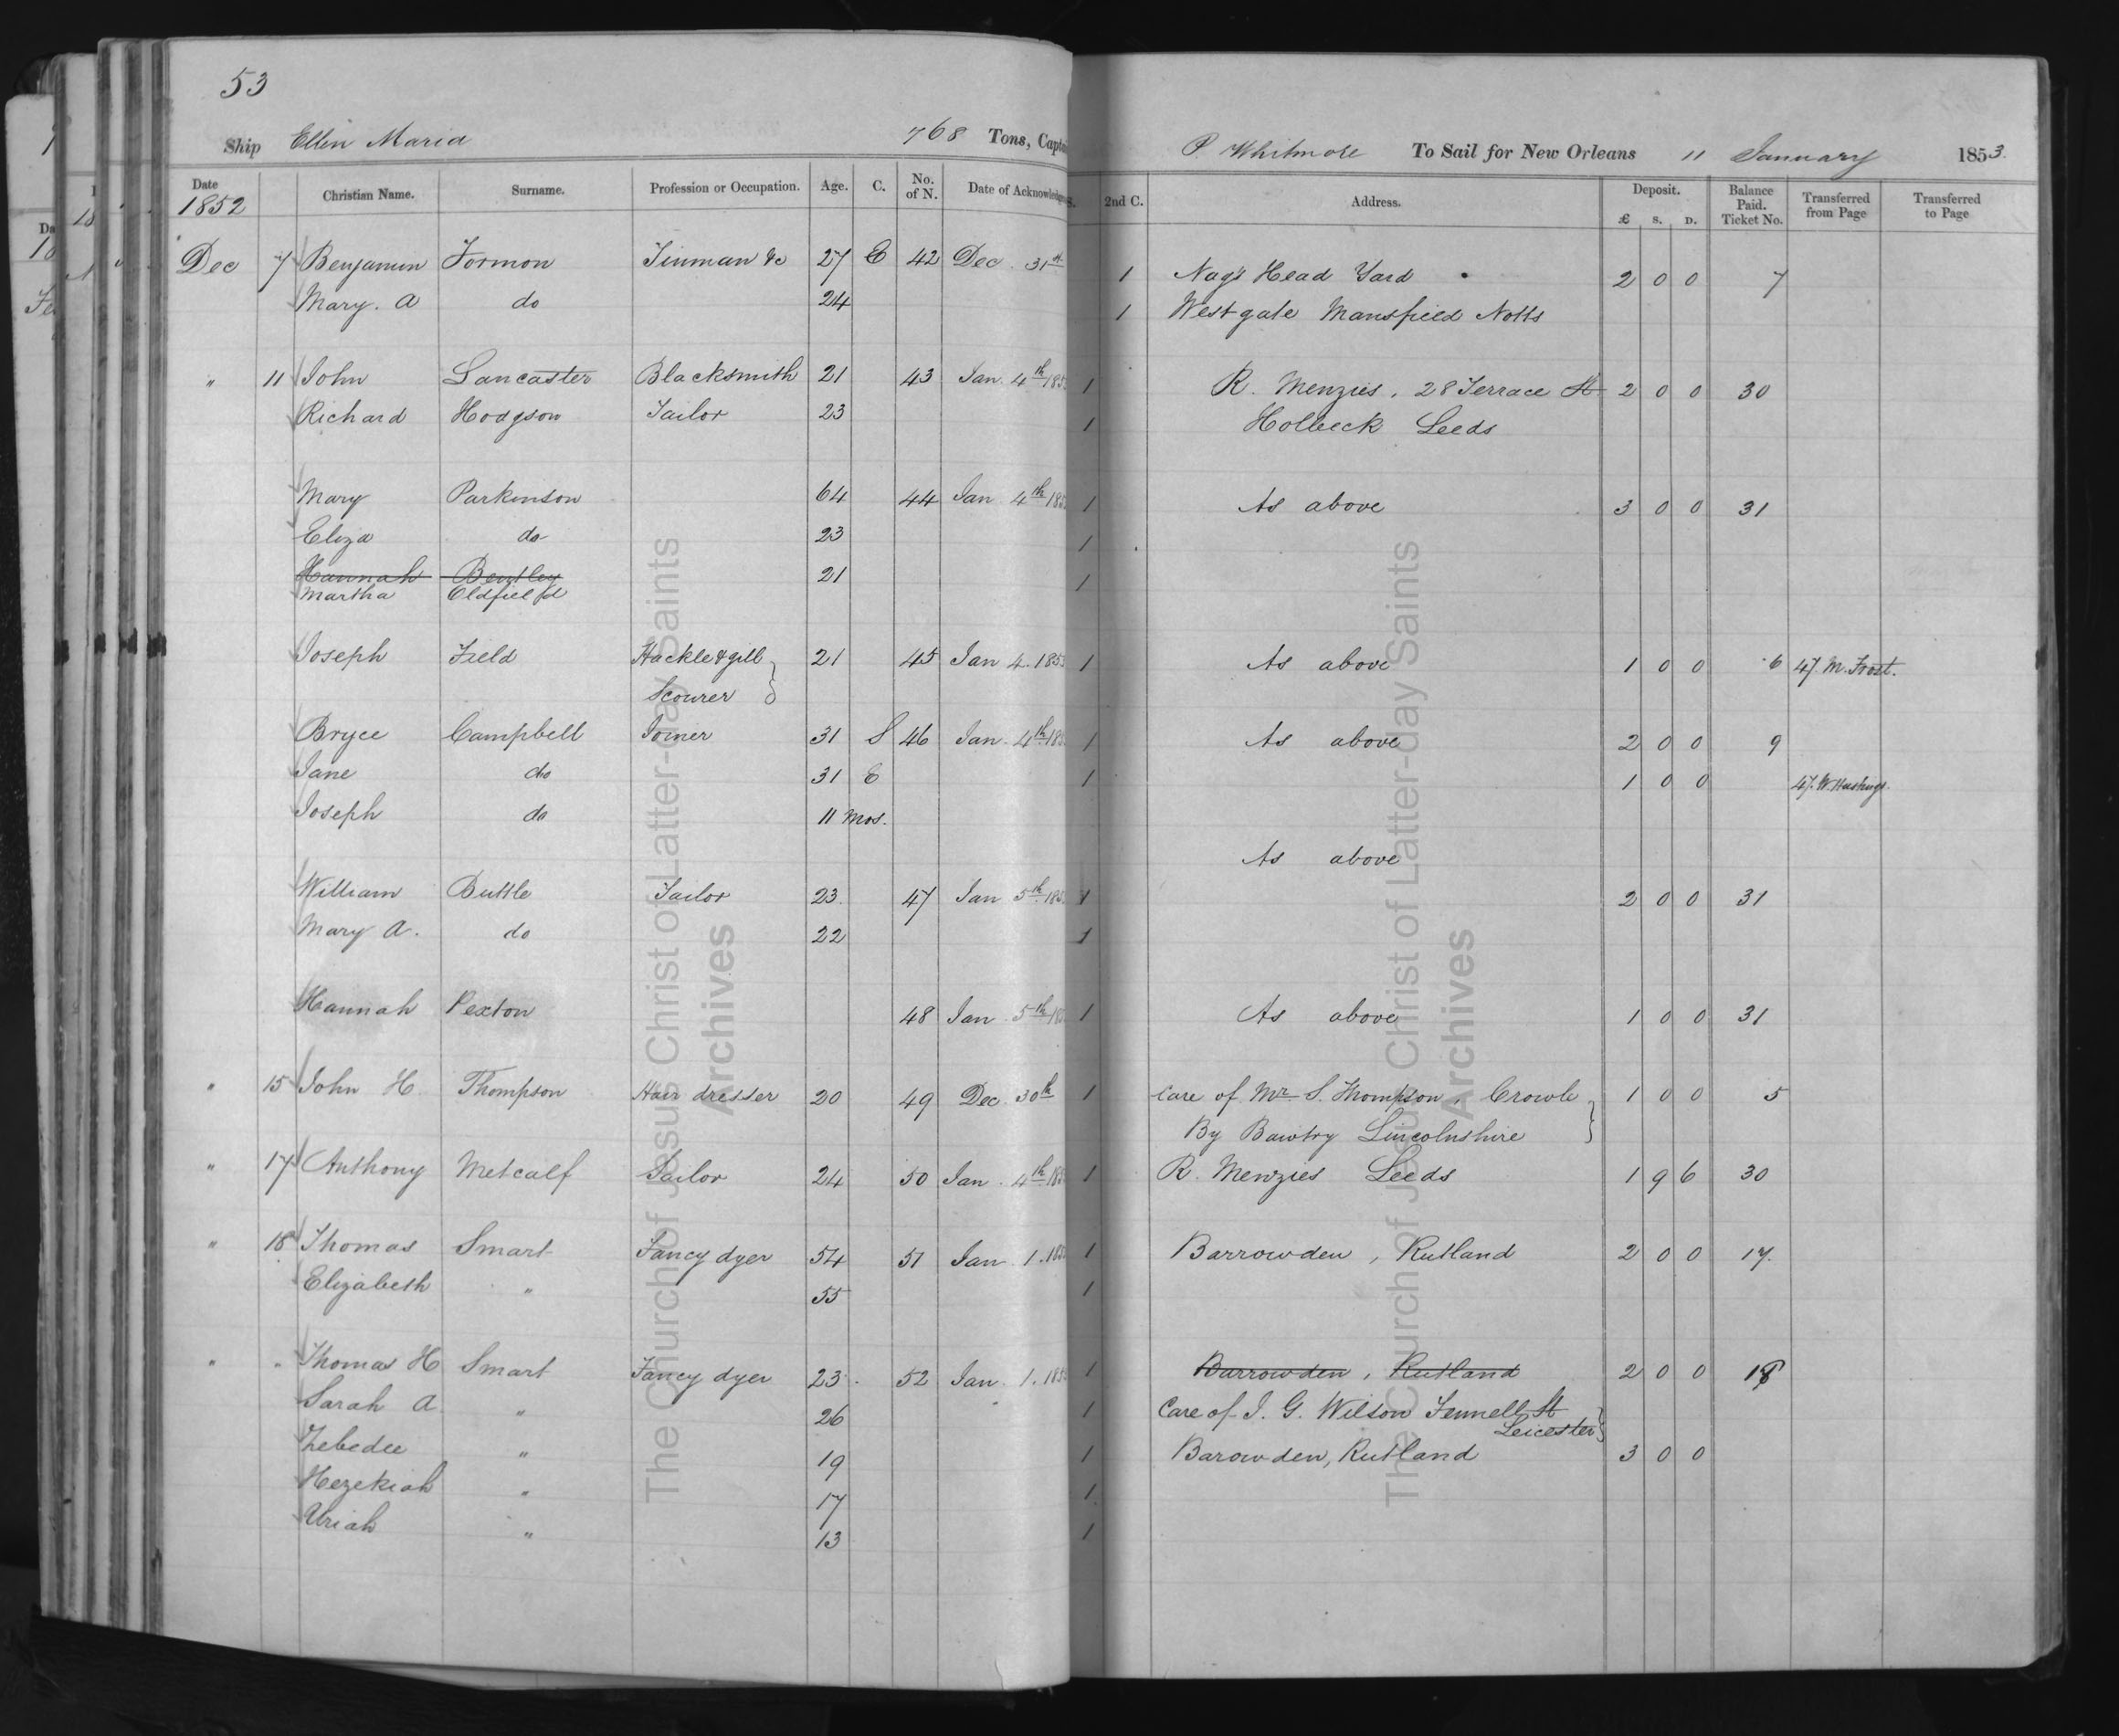 53
Ship Ellen Maria 768 Tons, Capta P. Whitmore To Sail for New Orleans 11 January 1853.
Date 1852 Christian Name. Surname. Profession or Occupation. Age. C. No. of N. Date of Acknowledgm s. 2nd C. Address. Deposit. £ s. D. Balance Paid. Ticket No. Transferred from Page Transferred to Page
Dec 7 Benjamin Formon Tinman &c 27 E 42 Dec. 31st 1 Nag's Head Yard 2 0 0 7
Mary. A do 24 1 Westgate Mansfield Notts
" 11 John Lancaster Blacksmith 21 43 Jan. 4th 185 1 R. Menzies. 28 Terrace St 2 0 0 30
Richard Hodgson Tailor 23 1 Holbeck Leeds
Mary Parkinson 64 44 Jan 4th 185 1 As above 3 0 0 31
Eliza do 23 1
Hannah Bentley 21 1
Martha Oldfield
Joseph Field Hackle & gill 21 45 Jan 4. 1853 1 As above 1 0 0 6 47. M. Frost.
Scourer
Bryce Campbell Joiner 31 S 46 Jan. 4th 185 1 As above 2 0 0 9
Jane do 31 E 1 1 0 0 47. W. Hastings.
Joseph do 11 mos.
As above
William Buttle Tailor 23. 47 Jan 5th 185 1 2 0 0 31
Mary A. do 22 1
Hannah Pexton 48 Jan 5th 185 1 As above 1 0 0 31
" 15 John H. Thompson Hair dresser 20 49 Dec. 30th 1 Care of Mr. S. Thompson, Crowle 1 0 0 5
By Bawtry Lincolnshire
" 17 Anthony Metcalf Tailor 24 50 Jan. 4th 185 1 R. Menzies Leeds 1 9 6 30
" 18 Thomas Smart Fancy dyer 54 51 Jan. 1. 185 1 Barrowden, Rutland 2 0 0 17.
Elizabeth " 55 1
" " Thomas H Smart Fancy dyer 23. 52 Jan. 1. 185 1 Barrowden, Rutland 2 0 0 18
Sarah A. " 26 1 Care of J. G. Wilson Fennell St
Leicester
Zebedee " 19 1 Barowden, Rutland 3 0 0
Hezekiah " 17 1
Uriah " 13 1
The Church of Jesus Christ of Latter-day Saints
Archives
The Church of Jesus Christ of Latter-day Saints
Archives